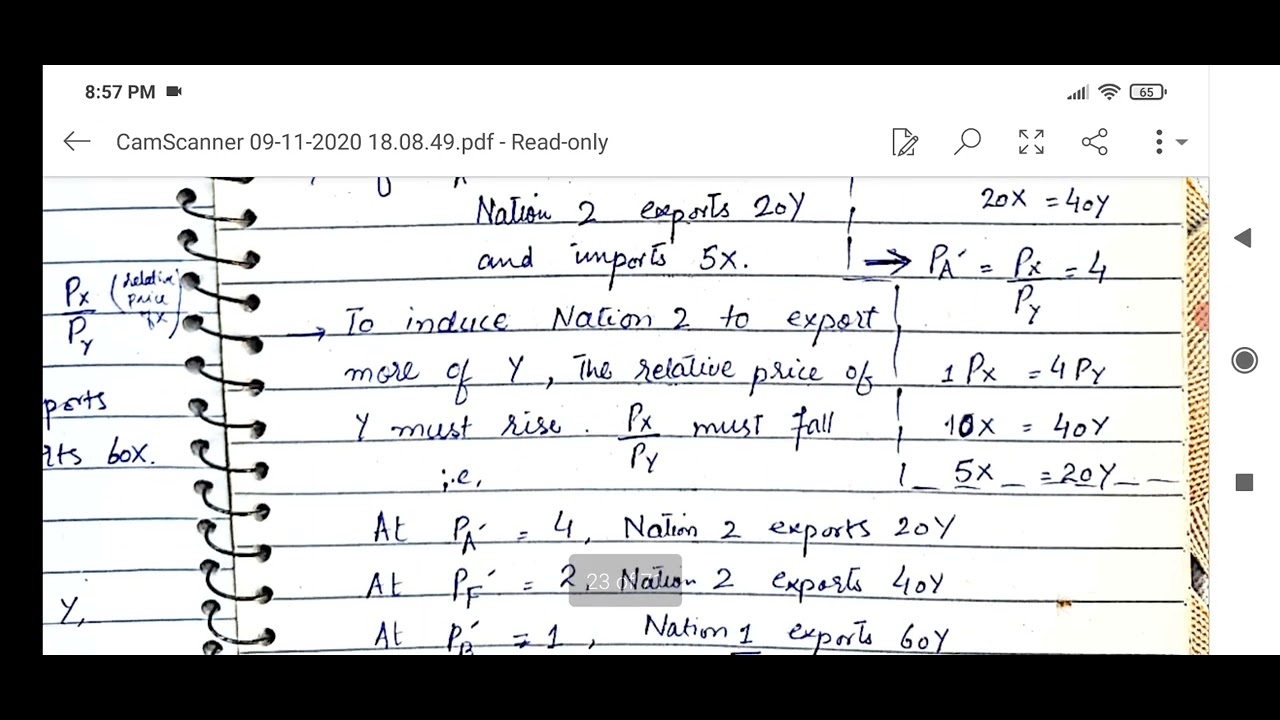 8:57 PM
65
CamScanner 09-11-2020 18.08.49.pdf - Read-only
Nation 2 exports 20Y
and imports 5X.
20X = 40Y
→ PA' = PX/PY = 4
PX/PY (relative price of X)
→ To induce Nation 2 to export
more of Y, The relative price of
Y must rise. PX/PY must fall
i.e,
1 PX = 4 PY
10X = 40Y
5X = 20Y
ports
rts 60X.
At PA' = 4, Nation 2 exports 20Y
At PF' = 2, Nation 2 exports 40Y
At PB' = 1, Nation 1 exports 60Y
Y,
23